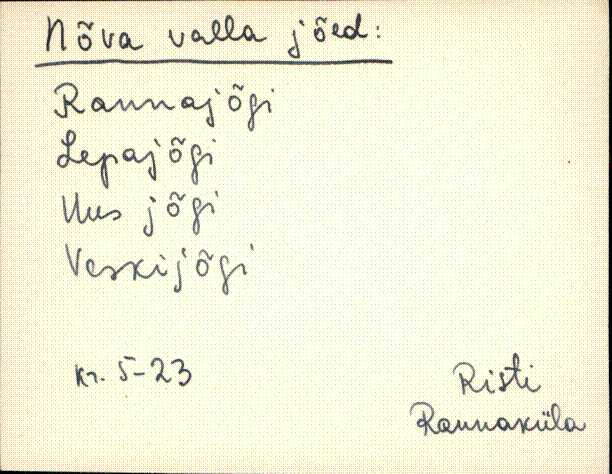 Nõva valla jõed:
Rannajõgi
Lepajõgi
Uus jõgi
Veskijõgi
Kr. 5-23
Risti
Rannaküla